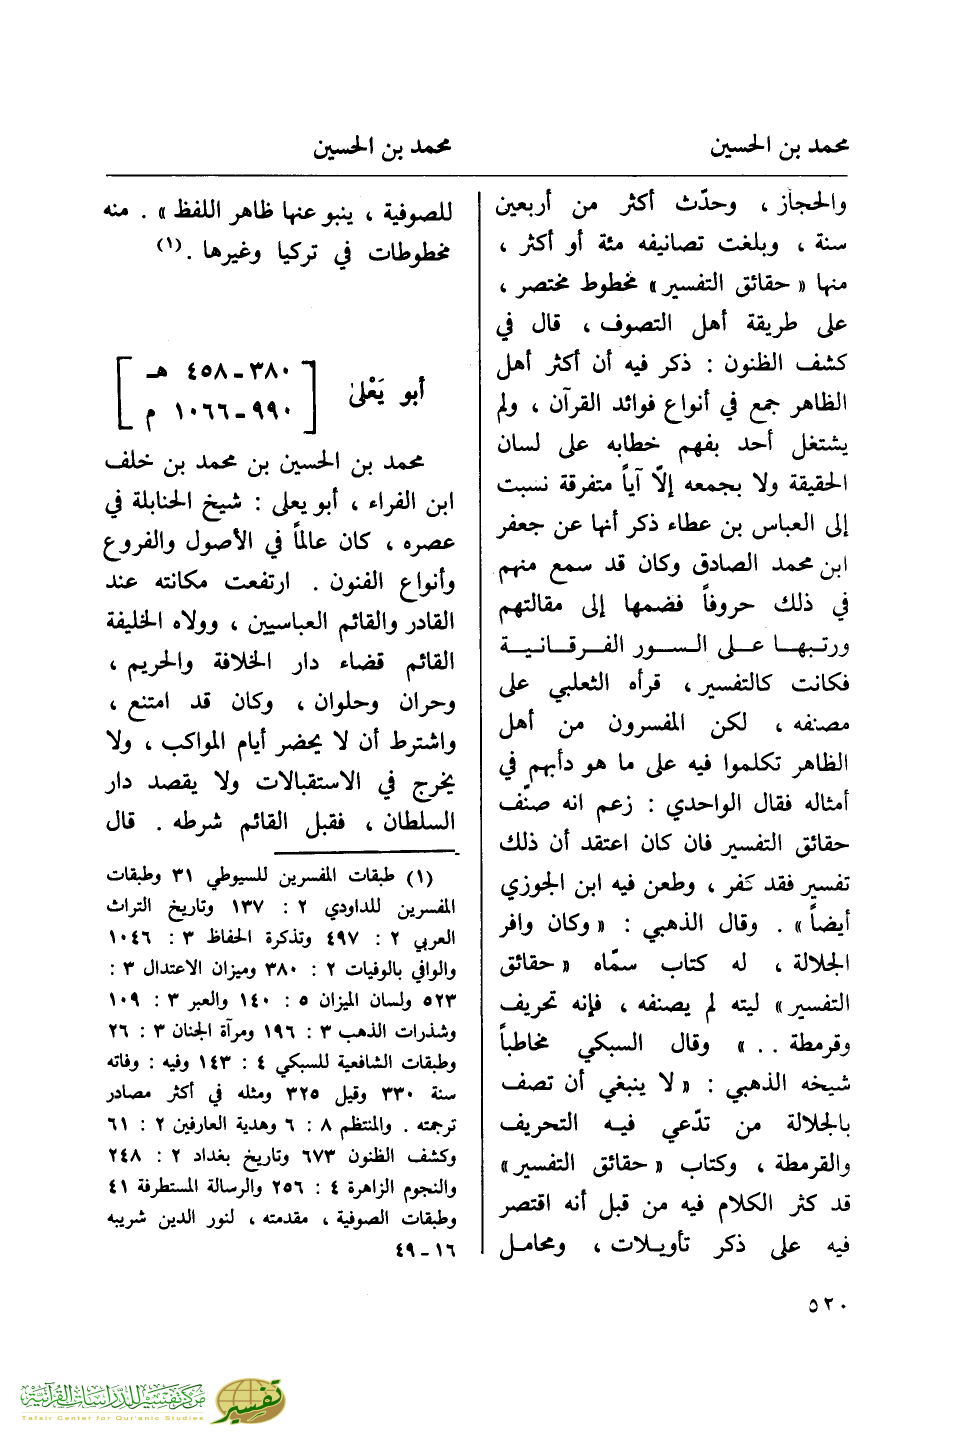 محمد بن الحسين
محمد بن الحسين
والحجاز ، وحدّث أكثر من أربعين
سنة ، وبلغت تصانيفه مئة أو أكثر ،
منها « حقائق التفسير» مخطوط مختصر ،
على طريقة أهل التصوف ، قال في
كشف الظنون : ذكر فيه أن أكثر أهل
الظاهر جمع في أنواع فوائد القرآن ، ولم
يشتغل أحد بفهم خطابه على لسان
الحقيقة ولا بجمعه إلاّ آياً متفرقة نسبت
إلى العباس بن عطاء ذكر أنها عن جعفر
ابن محمد الصادق وكان قد سمع منهم
في ذلك حروفاً فضمها إلى مقالتهم
ورتبهــا علــى الســور الفــرقانيــة
فكانت كالتفسير ، قرأه الثعلبي على
مصنفه ، لكن المفسرون من أهل
الظاهر تكلموا فيه على ما هو دأبهم في
أمثاله فقال الواحدي : زعم انه صنّف
حقائق التفسير فان كان اعتقد أن ذلك
تفسير فقد كفر ، وطعن فيه ابن الجوزي
أيضاً» . وقال الذهبي : « وكان وافر
الجلالة ، له كتاب سمّاه « حقائق
التفسير» ليته لم يصنفه ، فإنه تحريف
وقرمطة .. » وقال السبكي مخاطباً
شيخه الذهبي : « لا ينبغي أن تصف
بالجلالة من تدّعي فيه التحريف
والقرمطة ، وكتاب « حقائق التفسير»
قد كثر الكلام فيه من قبل أنه اقتصر
فيه على ذكر تأويلات ، ومحامل
للصوفية ، ينبو عنها ظاهر اللفظ» . منه
مخطوطات في تركيا وغيرها . (١)
أبو يَعْلىٰ
[ ٣٨٠ـ٤٥٨ هـ
٩٩٠ـ١٠٦٦ م ]
محمد بن الحسين بن محمد بن خلف
ابن الفراء ، أبو يعلى : شيخ الحنابلة في
عصره ، كان عالماً في الأصول والفروع
وأنواع الفنون . ارتفعت مكانته عند
القادر والقائم العباسيين ، وولاه الخليفة
القائم قضاء دار الخلافة والحريم ،
وحران وحلوان ، وكان قد امتنع ،
واشترط أن لا يحضر أيام المواكب ، ولا
يخرج في الاستقبالات ولا يقصد دار
السلطان ، فقبل القائم شرطه . قال
(١) طبقات المفسرين للسيوطي ٣١ وطبقات
المفسرين للداودي ٢ : ١٣٧ وتاريخ التراث
العربي ٢ : ٤٩٧ وتذكرة الحفاظ ٣ : ١٠٤٦
والوافي بالوفيات ٢ : ٣٨٠ وميزان الاعتدال ٣ :
٥٢٣ ولسان الميزان ٥ : ١٤٠ والعبر ٣ : ١٠٩
وشذرات الذهب ٣ : ١٩٦ ومرآة الجنان ٣ : ٢٦
وطبقات الشافعية للسبكي ٤ : ١٤٣ وفيه : وفاته
سنة ٣٣٠ وقيل ٣٢٥ ومثله في أكثر مصادر
ترجمته . والمنتظم ٨ : ٦ وهدية العارفين ٢ : ٦١
وكشف الظنون ٦٧٣ وتاريخ بغداد ٢ : ٢٤٨
والنجوم الزاهرة ٤ : ٢٥٦ والرسالة المستطرفة ٤١
وطبقات الصوفية ، مقدمته ، لنور الدين شريبه
١٦ـ٤٩
٥٢٠
مركز تفسير للدراسات القرآنية
Tafsir Center for Qur'anic Studies
تفسير